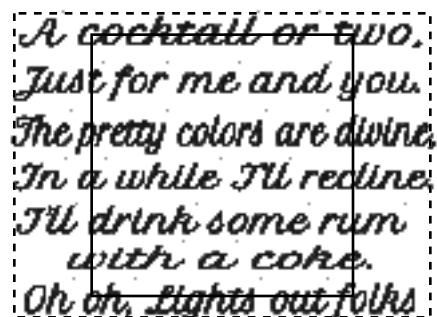 A cocktail or two.
Just for me and you.
The pretty colors are divine,
In a while I'll recline.
I'll drink some rum
with a coke.
Oh oh, Lights out folks